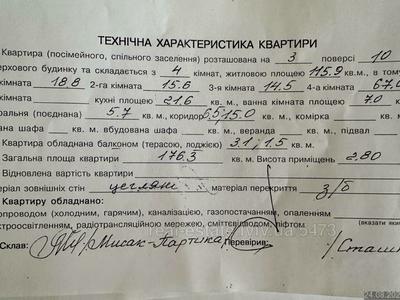 ТЕХНІЧНА ХАРАКТЕРИСТИКА КВАРТИРИ
Квартира (посімейного, спільного заселення) розташована на 3 поверсі 10
ерхового будинку та складається з 4 кімнат, житловою площею 115.9 кв.м., в тому
кімната 18.8 2-га кімната 15.6 3-я кімната 14.5 4-а кімната 67.0
кімната кухні площею 21.6 кв. м, ванна кімната площею 7.0 к
ральня (поєднана) 5.7 кв. м, коридор 6,5; 15.0 кв. м., комірка кв.
ана шафа кв. м вбудована шафа кв. м, веранда кв. м, підвал
Квартира обладнано балконом (терасою, лоджією) 3.1; 1.5 кв. м.
Загальна площа квартири 176.3 кв. м. Висота приміщень 2.80
Відновлена вартість квартири
теріал зовнішніх стін цегляні матеріал перекриття з/б
Квартиру обладнано:
опроводом (холодним, гарячим), каналізацією, газопостачанням, опаленням
ектроосвітленням, радіотрансляційною мережею, сміттєвідводом, ліфтом
вказати яким
Склав: Мисак-Партика Перевірив: Сташ
real-estate.lviv.ua 5473
24.08.202